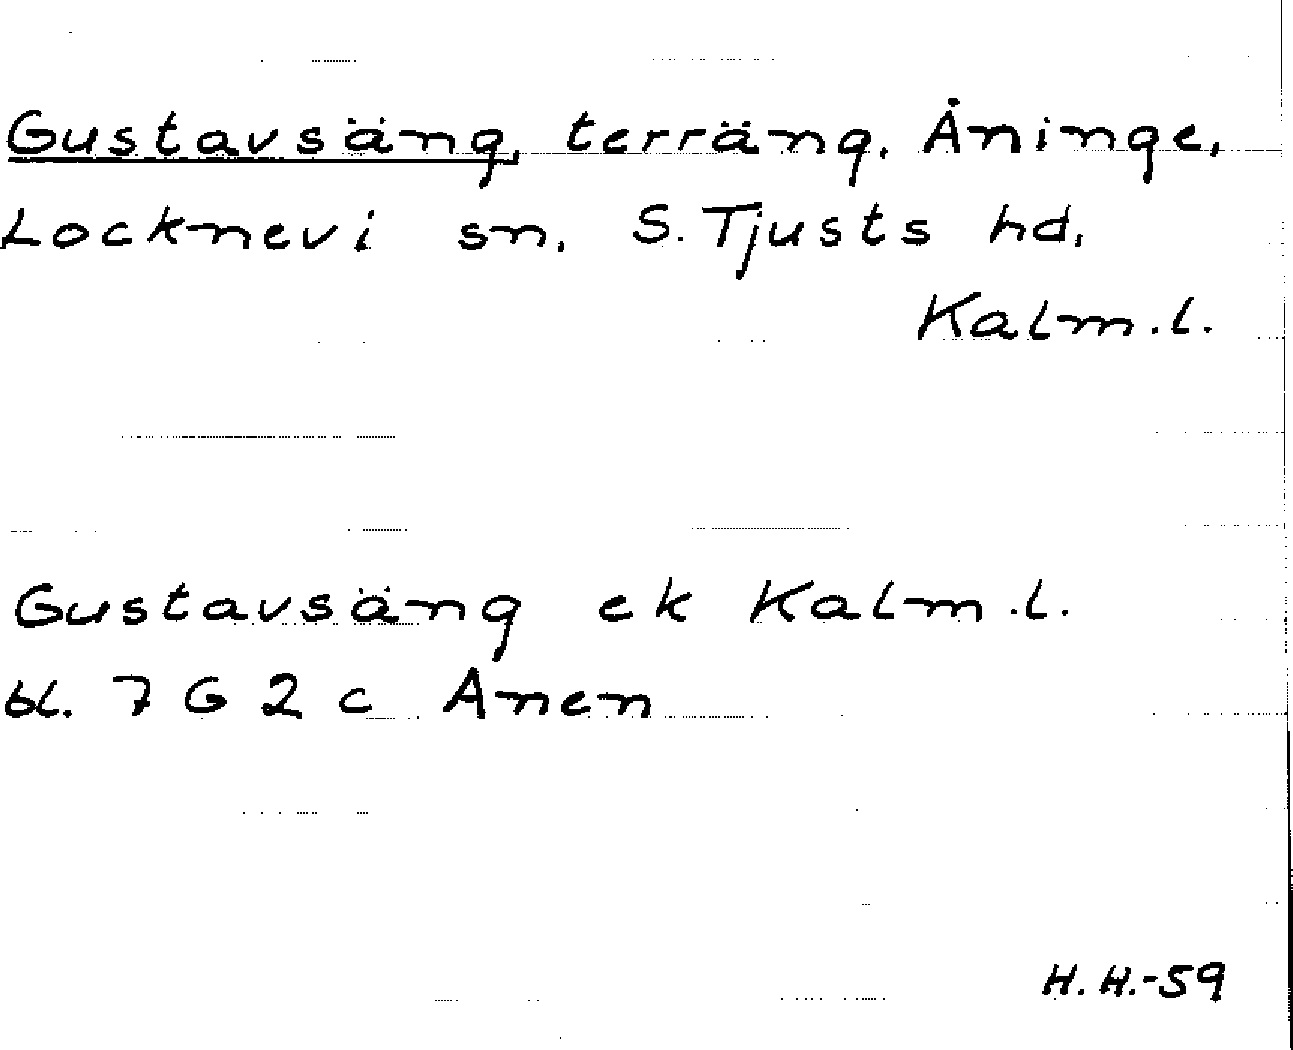 Gustavsäng, terräng. Åninge,
Locknevi sn. S. Tjusts hd.
Kalm.l.
Gustavsäng ek Kalm.l.
bl. 7 G 2 c Anen
H.H.-59